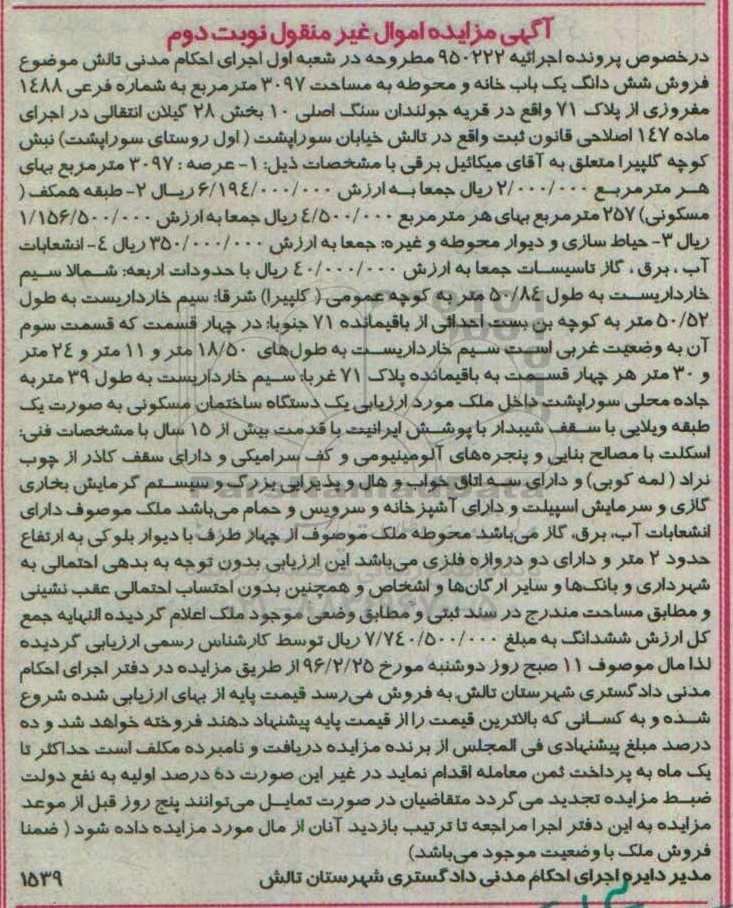 آگهی مزایده اموال غیر منقول نوبت دوم
درخصوص پرونده اجرائیه ۹۵۰۲۲۲ مطروحه در شعبه اول اجرای احکام مدنی تالش موضوع
فروش شش دانگ یک باب خانه و محوطه به مساحت ۳۰۹۷ مترمربع به شماره فرعی ۱٤۸۸
مفروزی از پلاک ۷۱ واقع در قریه جولندان سنگ اصلی ۱۰ بخش ۲۸ گیلان انتقالی در اجرای
ماده ۱٤۷ اصلاحی قانون ثبت واقع در تالش خیابان سوراپشت ( اول روستای سوراپشت) نبش
کوچه گلپیرا متعلق به آقای میکائیل برقی با مشخصات ذیل: ۱- عرصه : ۳۰۹۷ مترمربع بهای
هر مترمربع ۲/۰۰۰/۰۰۰ ریال جمعا به ارزش ۶/۱۹٤/۰۰۰/۰۰۰ ریال ۲- طبقه همکف (
مسکونی) ۲۵۷ مترمربع بهای هر مترمربع ٤/۵۰۰/۰۰۰ ریال جمعا به ارزش ۱/۱۵۶/۵۰۰/۰۰۰
ریال ۳- حیاط سازی و دیوار محوطه و غیره: جمعا به ارزش ۳۵۰/۰۰۰/۰۰۰ ریال ٤- انشعابات
آب ، برق ، گاز تاسیسات جمعا به ارزش ٤۰/۰۰۰/۰۰۰ ریال با حدودات اربعه: شمالا سیم
خارداریست به طول ۵۰/۸٤ متر به کوچه عمومی ( کلپیرا) شرقا: سیم خارداریست به طول
۵۰/۵۲ متر به کوچه بن بست احداثی از باقیمانده ۷۱ جنوبا: در چهار قسمت که قسمت سوم
آن به وضعیت غربی است سیم خارداریست به طول‌های ۱۸/۵۰ متر و ۱۱ متر و ۲٤ متر
و ۳۰ متر هر چهار قسمت به باقیمانده پلاک ۷۱ غربا: سیم خارداریست به طول ۳۹ متر به
جاده محلی سوراپشت داخل ملک مورد ارزیابی یک دستگاه ساختمان مسکونی به صورت یک
طبقه ویلایی با سقف شیبدار با پوشش ایرانیت با قدمت بیش از ۱۵ سال با مشخصات فنی:
اسکلت با مصالح بنایی و پنجره‌های آلومینیومی و کف سرامیکی و دارای سقف کاذر از چوب
نراد ( لمه کوبی) و دارای سه اتاق خواب و هال و پذیرایی بزرگ و سیستم گرمایش بخاری
گازی و سرمایش اسپیلت و دارای آشپزخانه و سرویس و حمام می‌باشد ملک موصوف دارای
انشعابات آب، برق، گاز می‌باشد محوطه ملک موصوف از چهار طرف با دیوار بلوکی به ارتفاع
حدود ۲ متر و دارای دو دروازه فلزی می‌باشد این ارزیابی بدون توجه به بدهی احتمالی به
شهرداری و بانک‌ها و سایر ارگان‌ها و اشخاص و همچنین بدون احتساب احتمالی عقب نشینی
و مطابق مساحت مندرج در سند ثبتی و مطابق وضعی موجود ملک اعلام گردیده النهایه جمع
کل ارزش ششدانگ به مبلغ ۷/۷٤۰/۵۰۰/۰۰۰ ریال توسط کارشناس رسمی ارزیابی گردیده
لذا مال موصوف ۱۱ صبح روز دوشنبه مورخ ۹۶/۲/۲۵ از طریق مزایده در دفتر اجرای احکام
مدنی دادگستری شهرستان تالش به فروش می‌رسد قیمت پایه از بهای ارزیابی شده شروع
شده و به کسانی که بالاترین قیمت را از قیمت پایه پیشنهاد دهند فروخته خواهد شد و ده
درصد مبلغ پیشنهادی فی المجلس از برنده مزایده دریافت و نامبرده مکلف است حداکثر تا
یک ماه به پرداخت ثمن معامله اقدام نماید در غیر این صورت ده درصد اولیه به نفع دولت
ضبط مزایده تجدید می گردد متقاضیان در صورت تمایل می‌توانند پنج روز قبل از موعد
مزایده به این دفتر اجرا مراجعه تا ترتیب بازدید آنان از مال مورد مزایده داده شود ( ضمنا
فروش ملک با وضعیت موجود می‌باشد)
مدیر دایره اجرای احکام مدنی دادگستری شهرستان تالش ۱۵۳۹